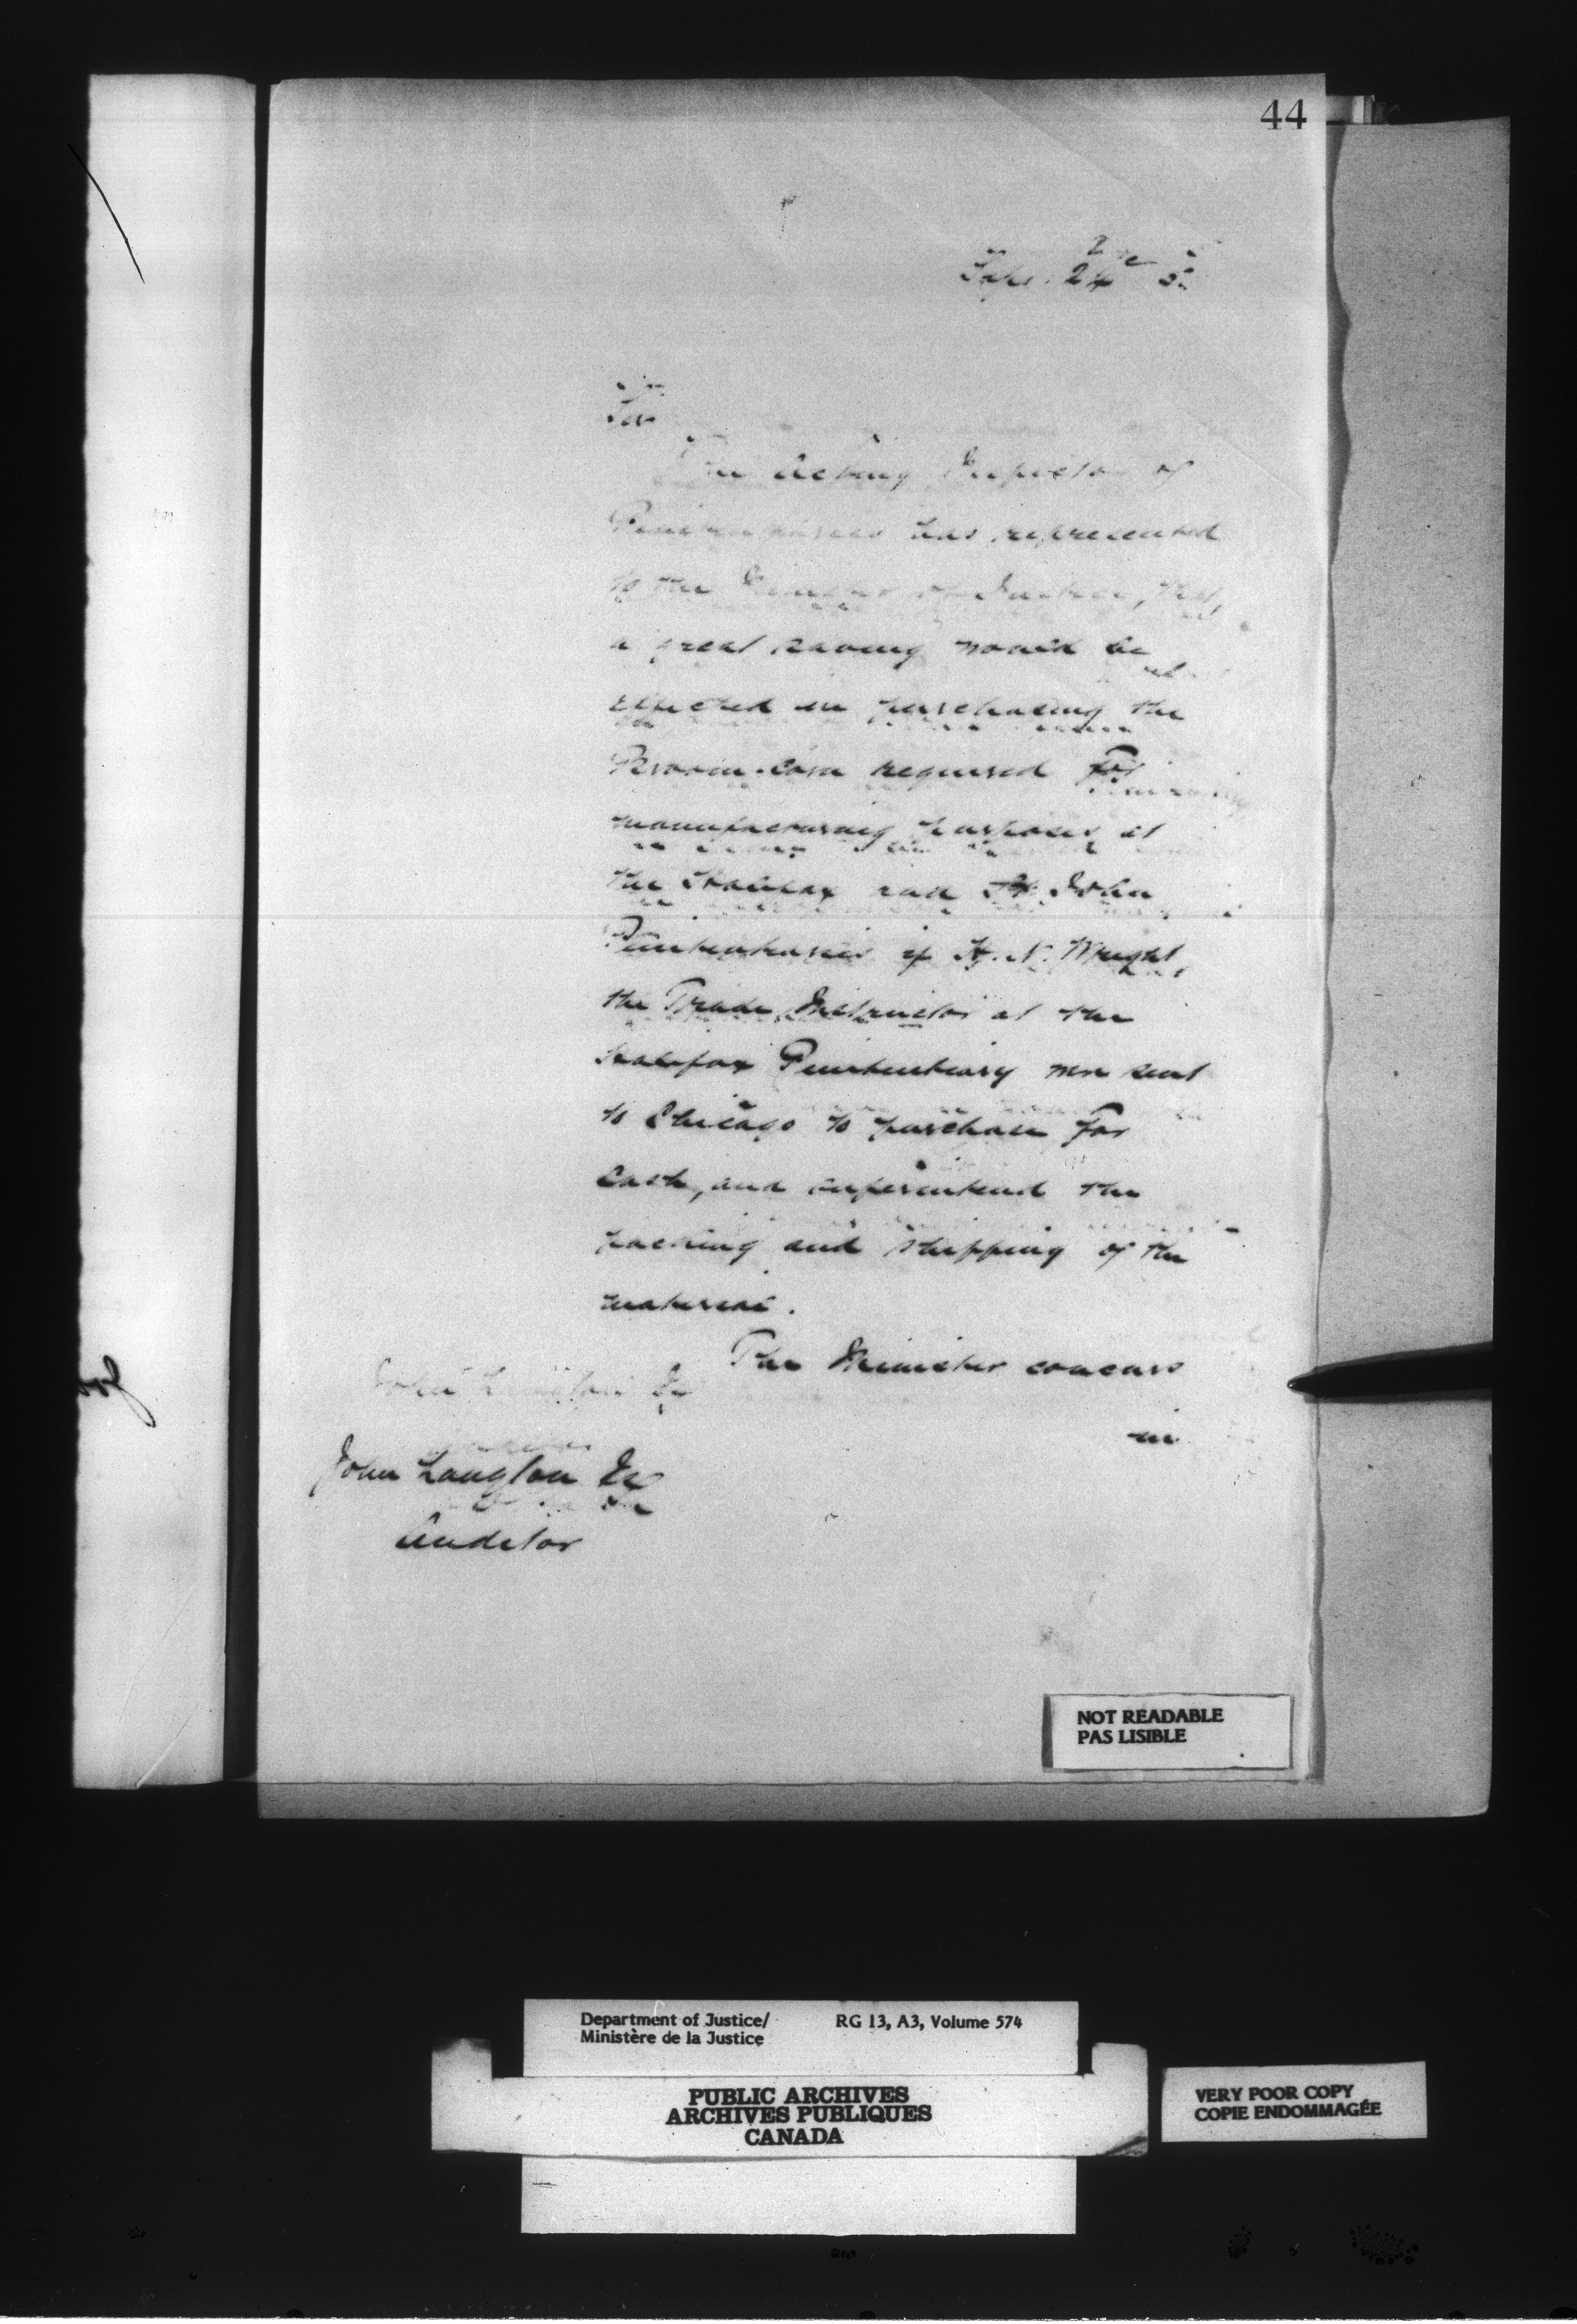 44
Sir
The Acting Inspector of
Penitentiaries has represented
to the Minister of Justice, that
a great saving would be
effected in purchasing the
Broom-corn required for
manufacturing purposes at
the Halifax and St. John
Penitentiaries if H. N. Wright,
the Trade Instructor at the
Halifax Penitentiary were sent
to Chicago to purchase for
Cash, and superintend the
packing and shipping of the
material.
The Minister concurs
in
John Langton Esq
Auditor
NOT READABLE
PAS LISIBLE
Department of Justice/ RG 13, A3, Volume 574
Ministère de la Justice
PUBLIC ARCHIVES
ARCHIVES PUBLIQUES
CANADA
VERY POOR COPY
COPIE ENDOMMAGÉE